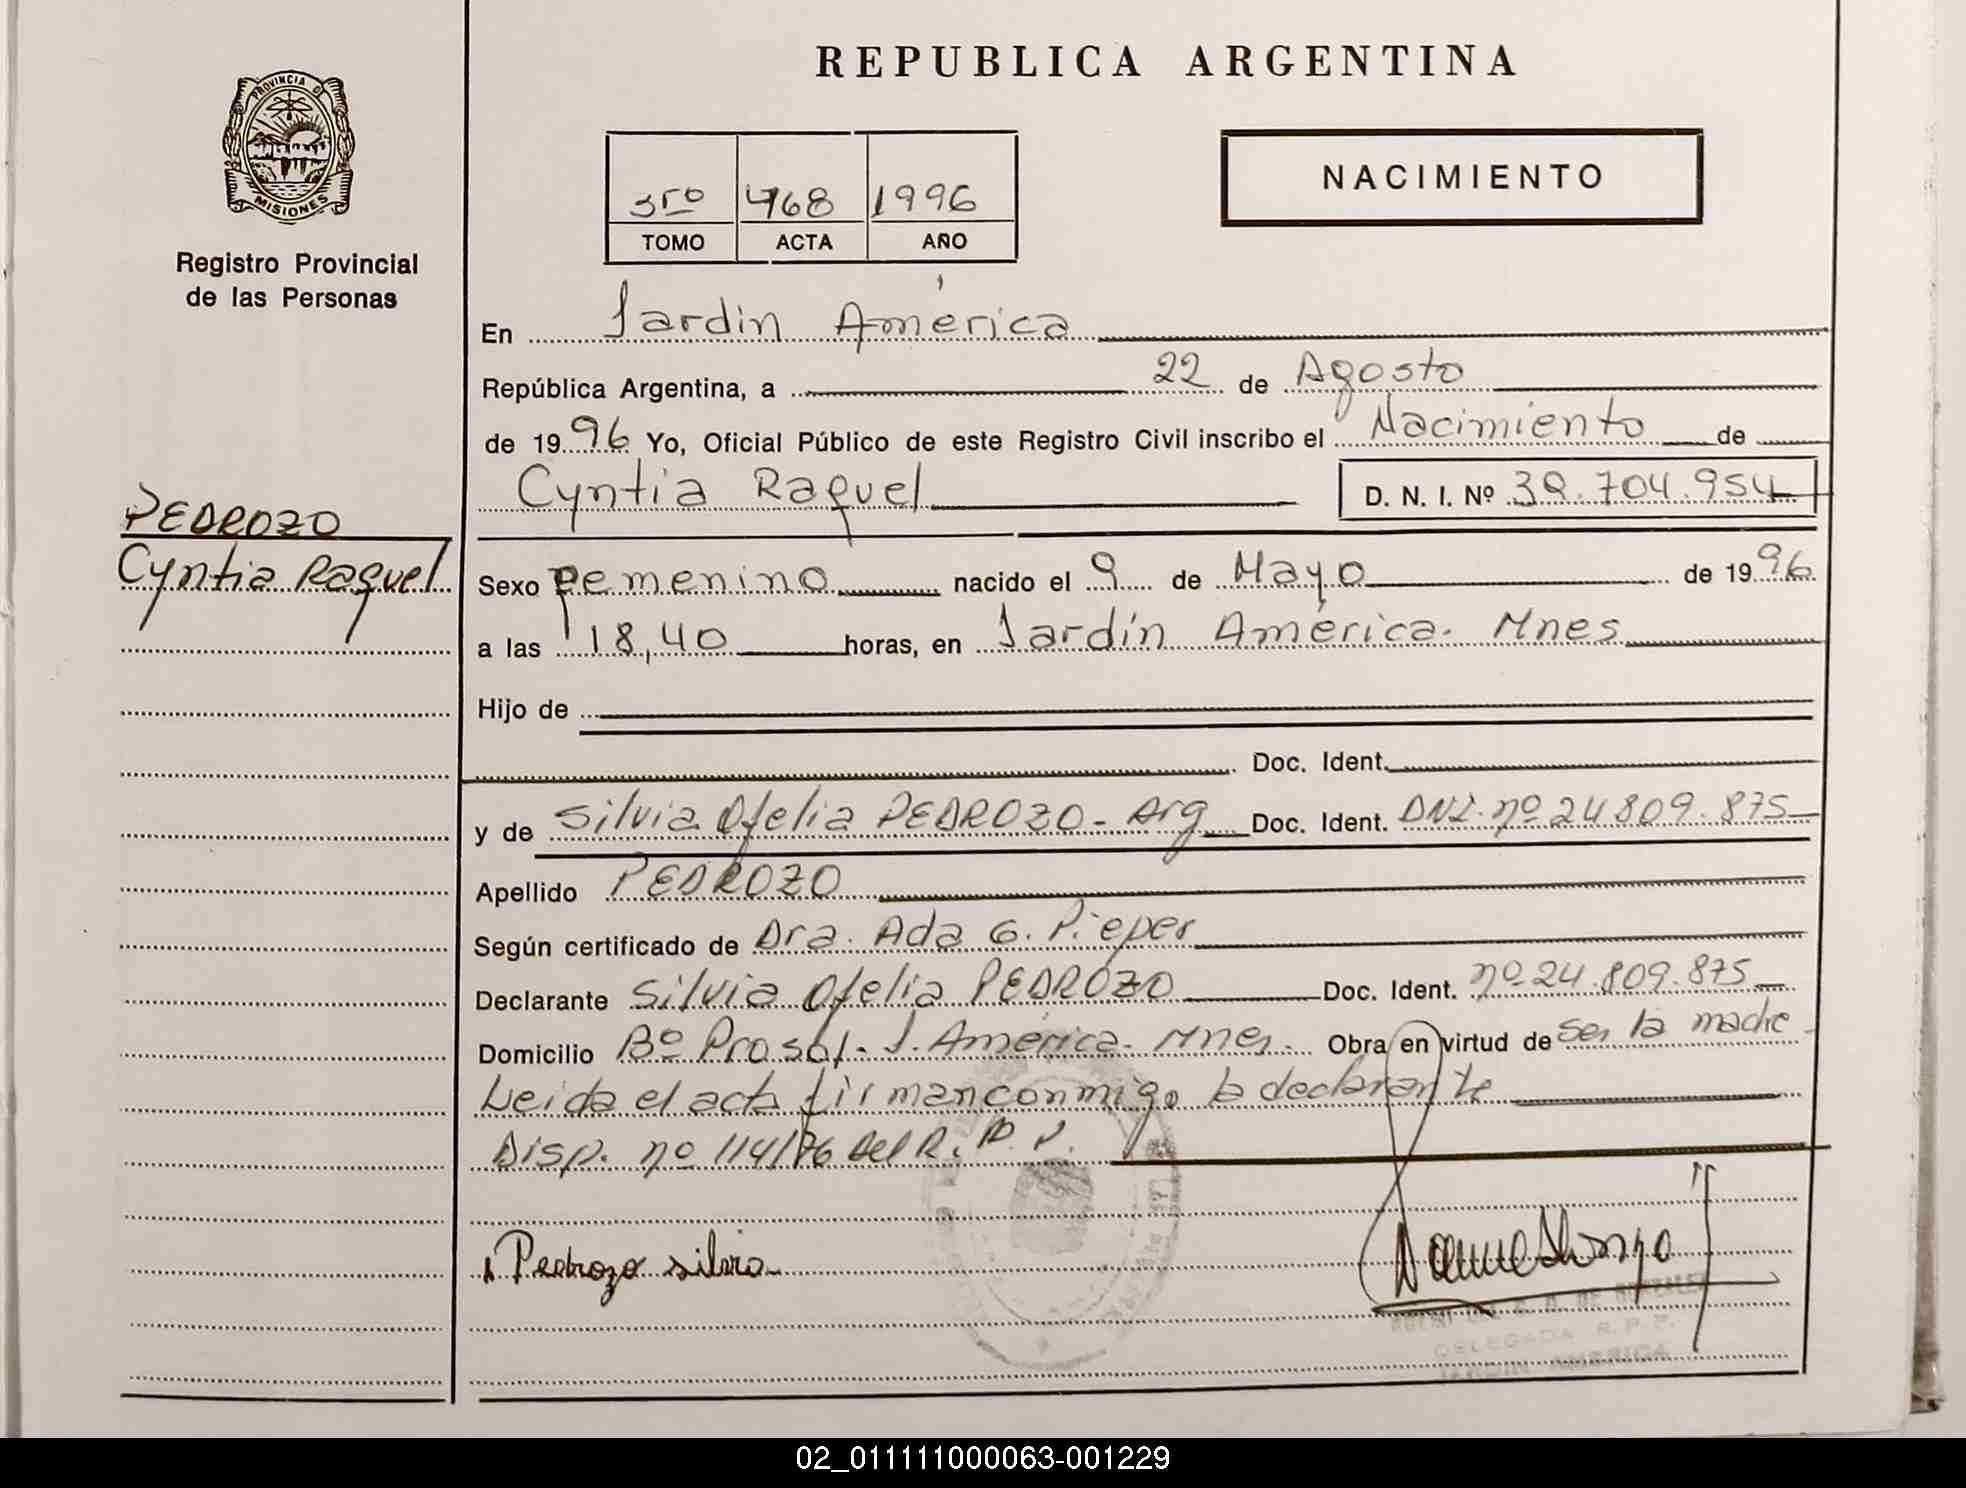 REPUBLICA ARGENTINA
PROVINCIA DE
MISIONES
Registro Provincial
de las Personas
3ro 468 1996
TOMO ACTA AÑO
NACIMIENTO
En Jardin América
República Argentina, a 22 de Agosto
de 1996 Yo, Oficial Público de este Registro Civil inscribo el Nacimiento de
Cyntia Raquel D. N. I. Nº 39.704.954
PEDROZO
Cyntia Raquel
Sexo Femenino nacido el 9 de Mayo de 1996
a las 18,40 horas, en Jardín América. Mnes
Hijo de
Doc. Ident.
y de Silvia Ofelia PEDROZO - Arg Doc. Ident. DNI. nº 24.809.875
Apellido PEDROZO
Según certificado de Dra. Ada G. Pieper
Declarante Silvia Ofelia PEDROZO Doc. Ident. nº 24.809.875
Domicilio Bº Prosol. J. América. Mnes. Obra en virtud de ser la madre
Leida el acta firman conmigo la declarante
Disp. nº 114/76 del R. P. P.
Pedrozo silvia
DE GONZALEZ
DELEGADA R. P. P.
JARDIN AMERICA
02_011111000063-001229